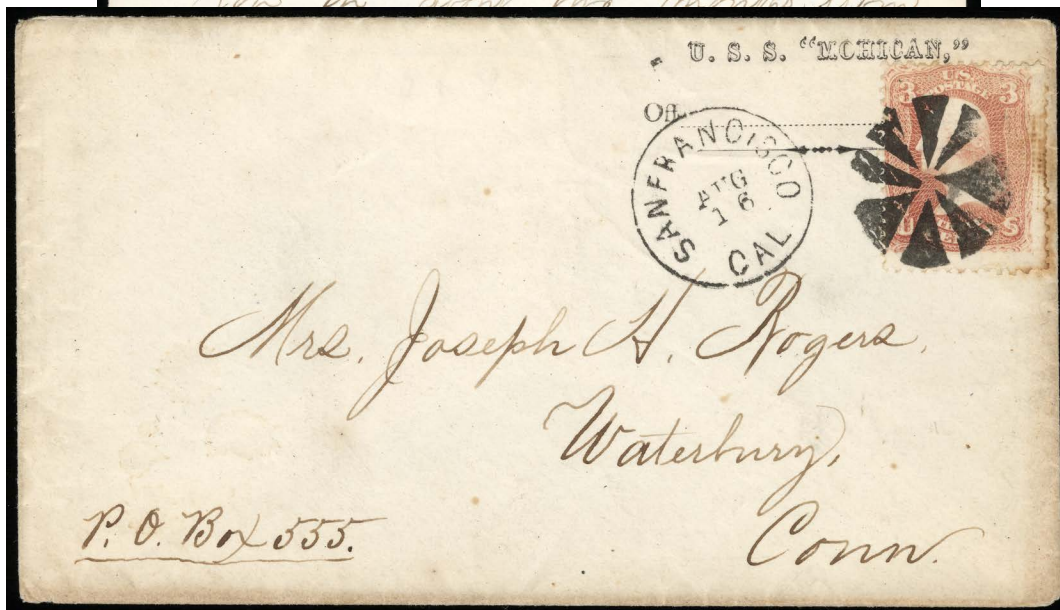 U. S. S. "MOHICAN,"
Off
SAN FRANCISCO
AUG
16
CAL
3 U.S. 3
POSTAGE
U S
Mrs. Joseph H. Rogers,
Waterbury,
Conn.
P. O. Box 555.